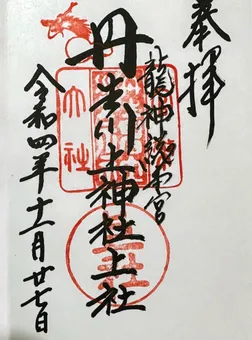 奉拝
龍神総本宮
丹生川上神社上社
令和四年十一月廿七日